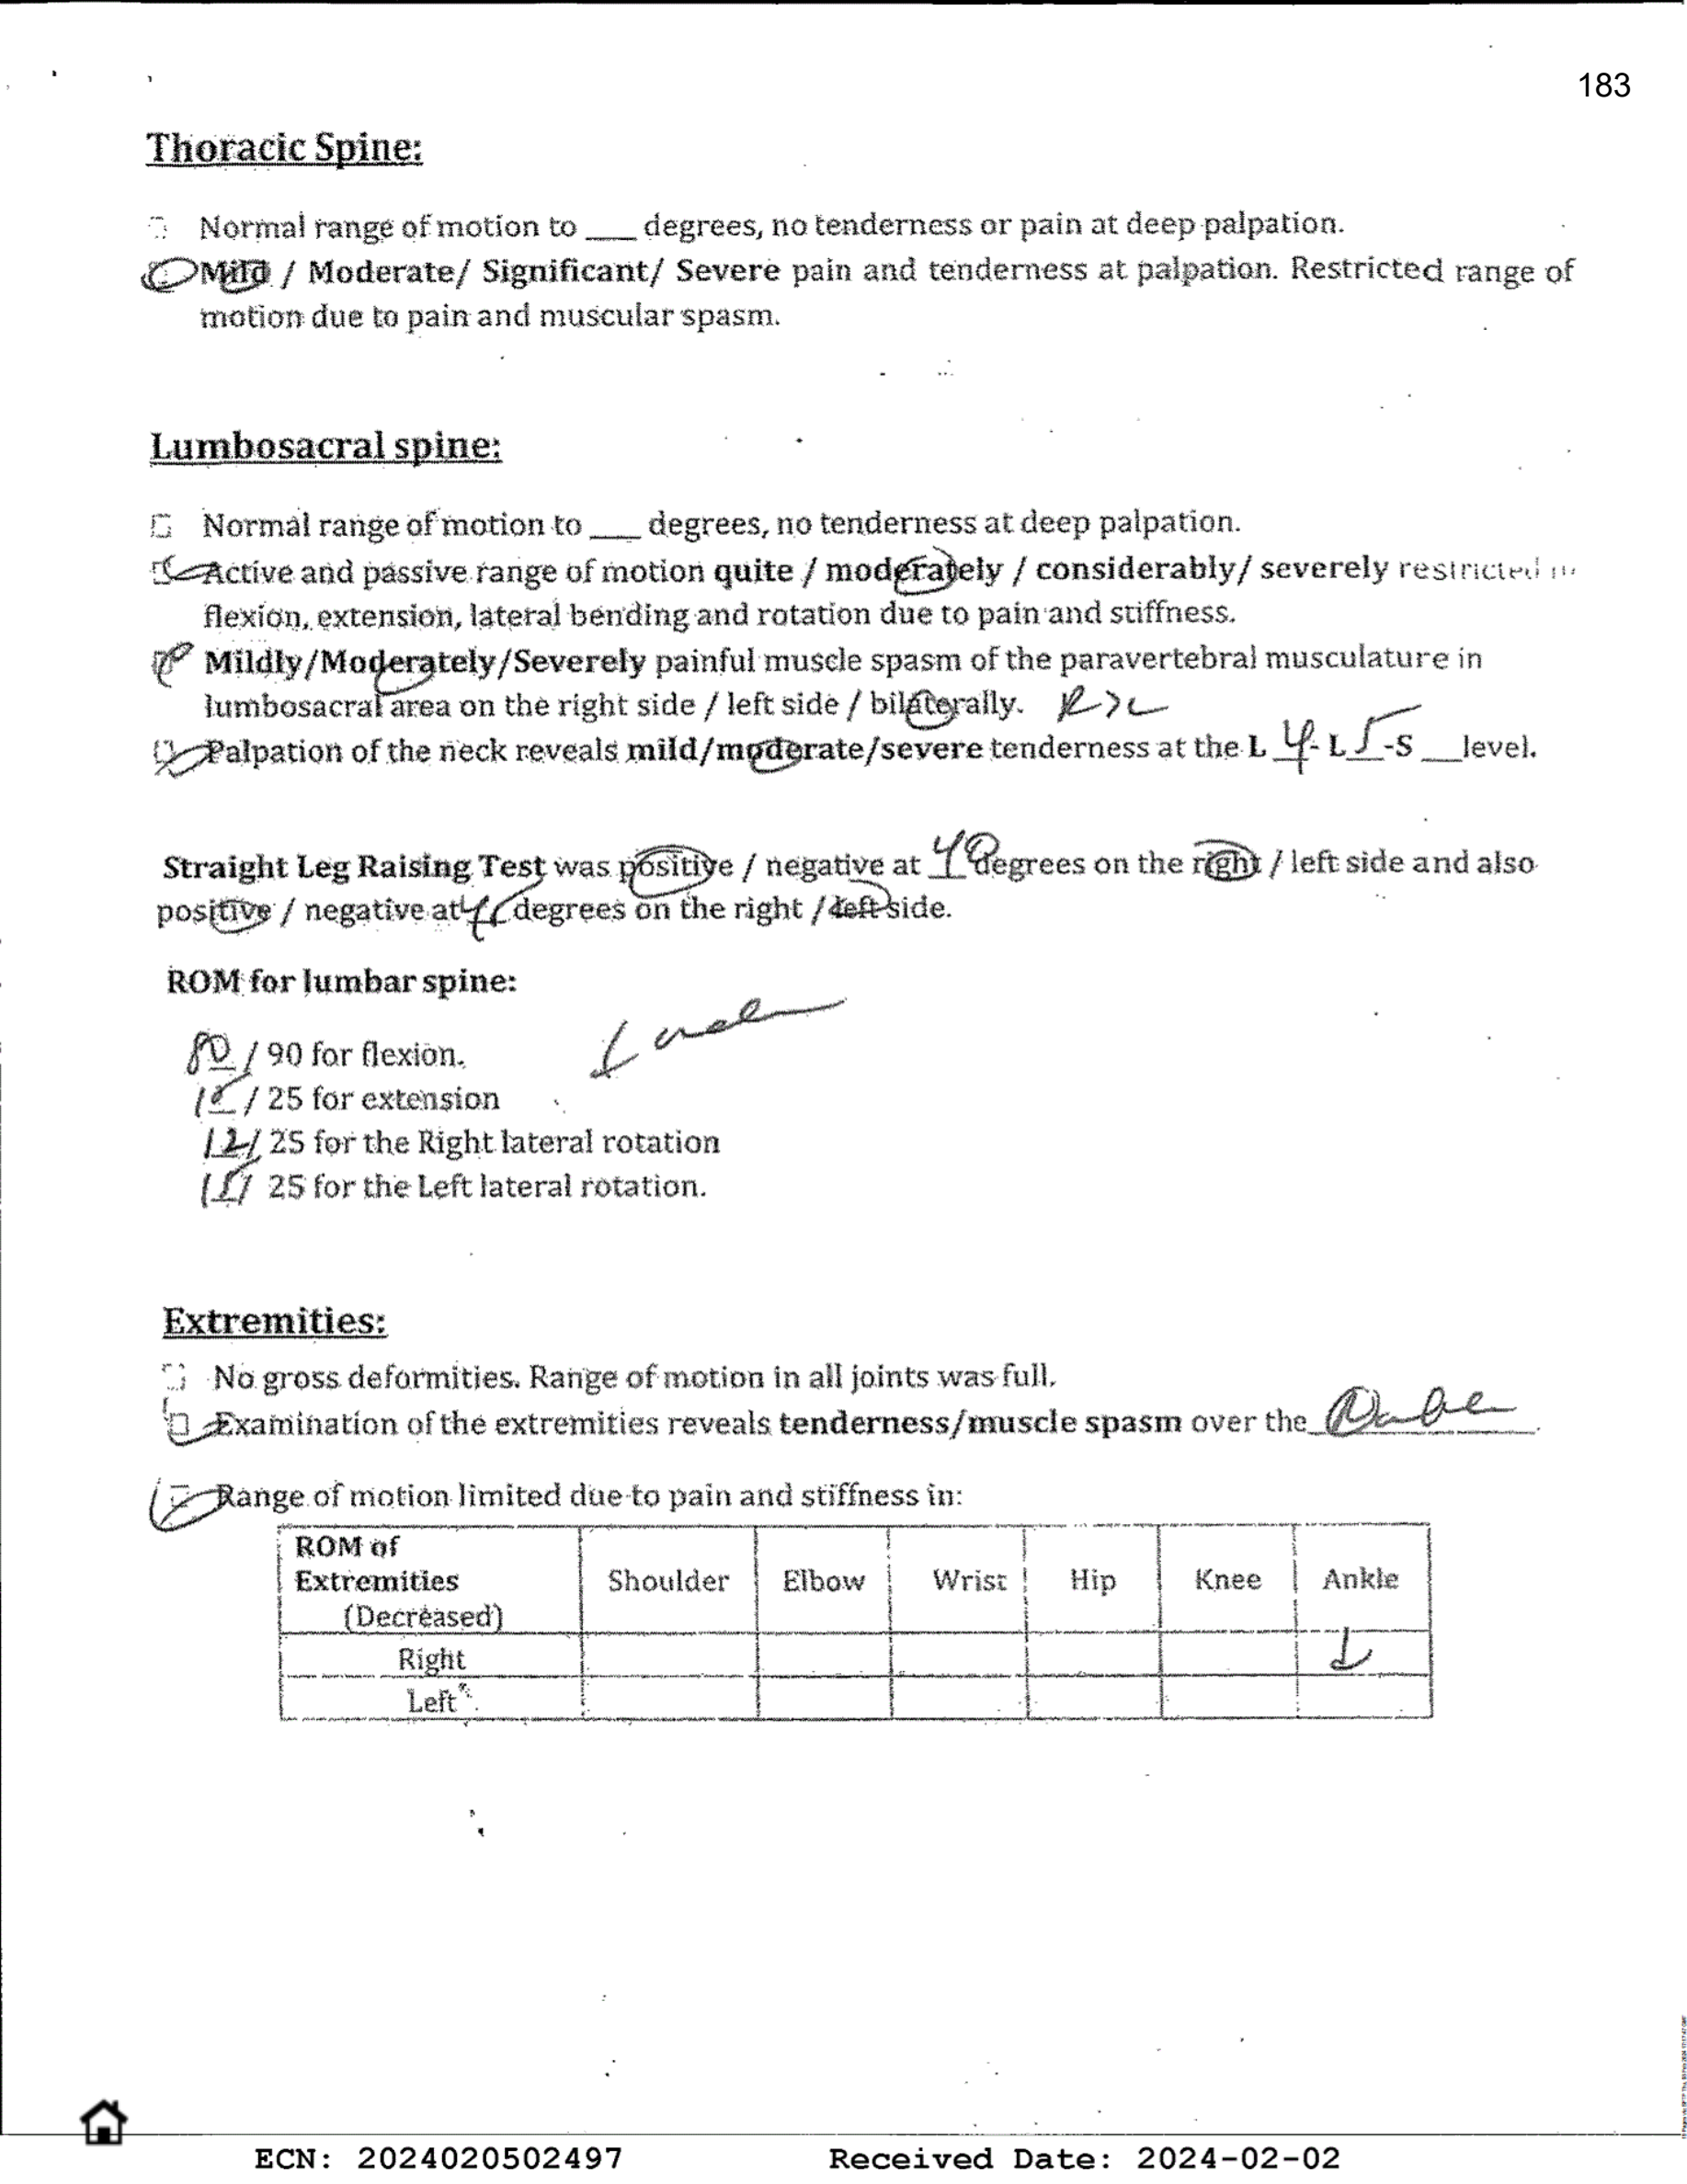 183
Thoracic Spine:
Normal range of motion to ___ degrees, no tenderness or pain at deep palpation.
Mild / Moderate/ Significant/ Severe pain and tenderness at palpation. Restricted range of
motion due to pain and muscular spasm.
Lumbosacral spine:
Normal range of motion to ___ degrees, no tenderness at deep palpation.
Active and passive range of motion quite / moderately / considerably/ severely restricted in
flexion, extension, lateral bending and rotation due to pain and stiffness.
Mildly/Moderately/Severely painful muscle spasm of the paravertebral musculature in
lumbosacral area on the right side / left side / bilaterally. R>L
Palpation of the neck reveals mild/moderate/severe tenderness at the L 4 - L 5 -S __level.
Straight Leg Raising Test was positive / negative at 40 degrees on the right / left side and also
positive / negative at degrees on the right / left side.
ROM for lumbar spine:
80 / 90 for flexion.
/ 25 for extension
12/ 25 for the Right lateral rotation
15/ 25 for the Left lateral rotation.
Extremities:
No gross deformities. Range of motion in all joints was full.
Examination of the extremities reveals tenderness/muscle spasm over the
Range of motion limited due to pain and stiffness in:
ROM of
Extremities
(Decreased) Shoulder Elbow Wrist Hip Knee Ankle
Right ↓
Left
ECN: 2024020502497 Received Date: 2024-02-02